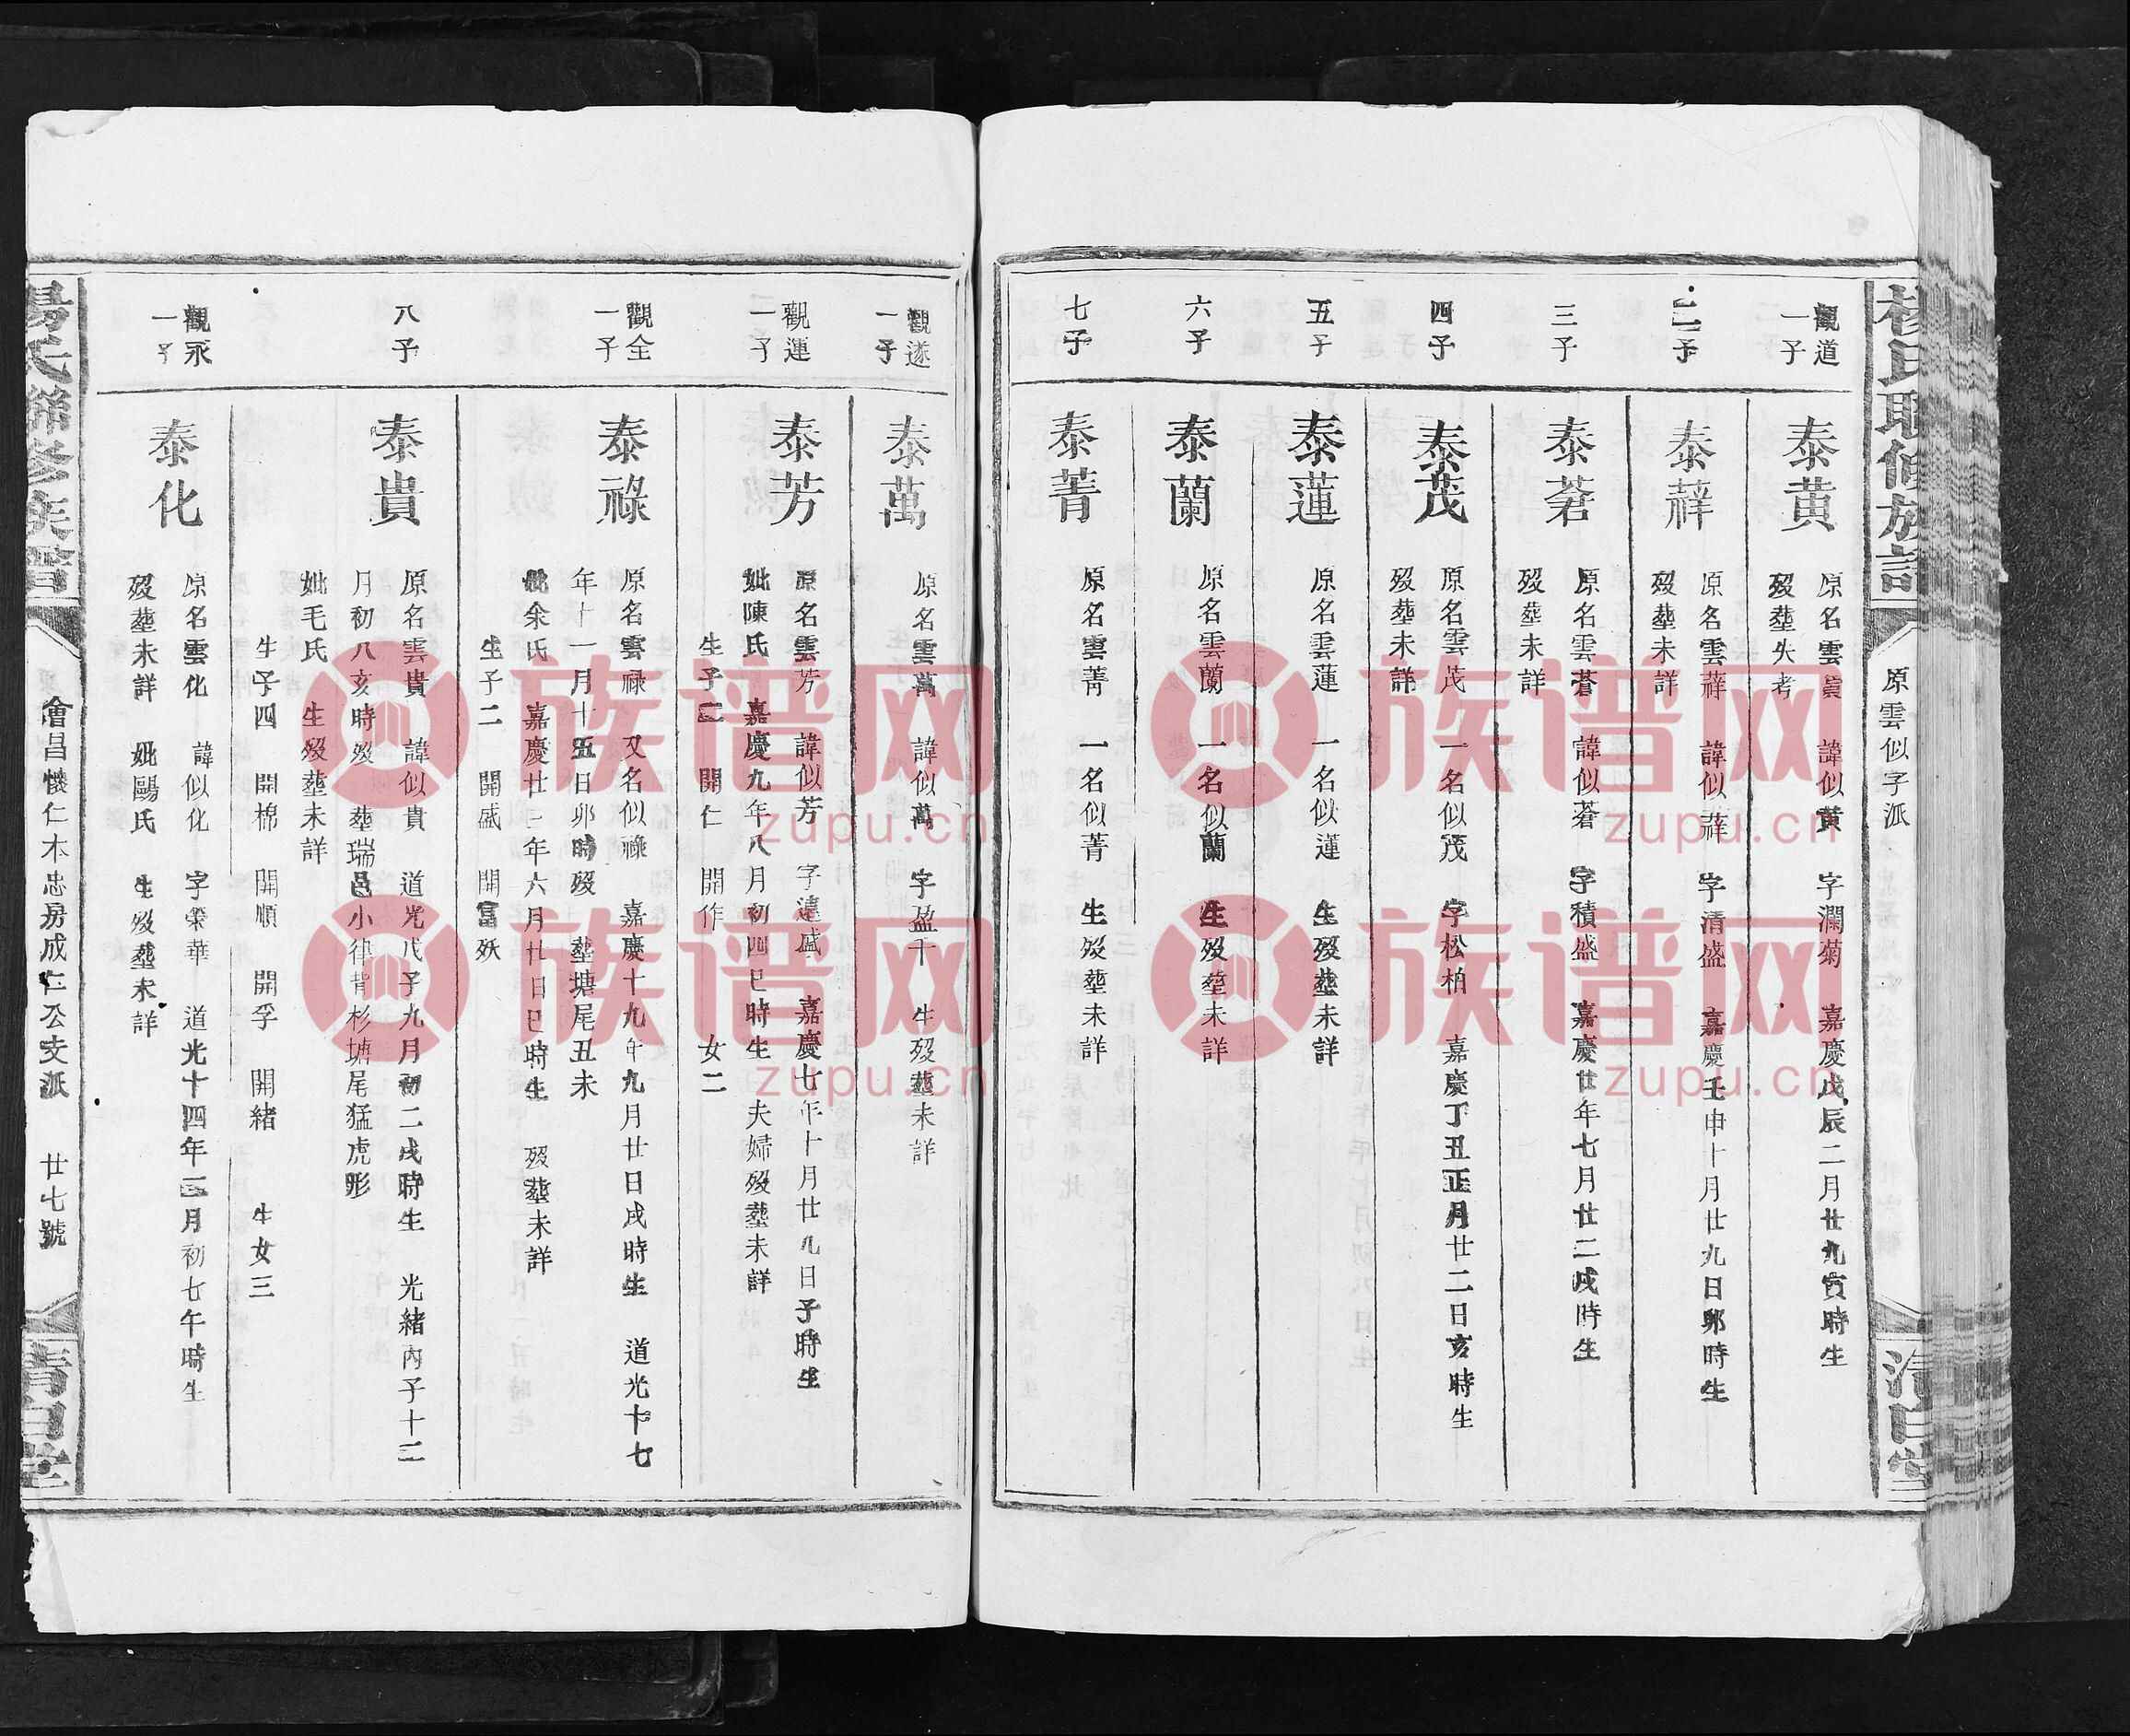 楊氏聯修族譜
原雲似字派
清白堂
觀道
一子
泰黄
原名雲黄 諱似黄 字瀾菊 嘉慶戊辰二月廿九寅時生
歿塟失考
二子
泰蕥
原名雲蕥 諱似蕥 字清盛 嘉慶壬申十月廿九日卯時生
歿塟未詳
三子
泰䓁
原名雲蒼 諱似䓁 字積盛 嘉慶廿年七月廿二戌時生
歿塟未詳
四子
泰茂
原名雲茂 一名似茂 字松柏 嘉慶丁丑正月廿二日亥時生
歿塟未詳
五子
泰蓮
原名雲蓮 一名似蓮 生歿塟未詳
六子
泰蘭
原名雲蘭 一名似蘭 生歿塟未詳
七子
泰菁
原名雲菁 一名似菁 生歿塟未詳
觀遂
一子
泰萬
原名雲萬 諱似萬 字盈千 生歿塟未詳
觀運
一子
泰芳
原名雲芳 諱似芳 字遠盛 嘉慶七年十月廿九日子時生
妣陳氏 嘉慶九年八月初四巳時生 夫婦歿塟未詳
生子二 開仁 開作 女二
觀全
一子
泰祿
原名雲禄 又名似祿 嘉慶十九年九月廿日戌時生 道光十七
年十一月十五日卯時歿 塟塘尾丑未
妣余氏 嘉慶廿二年六月廿日巳時生 歿塟未詳
生子二 開盛 開富 歿
八子
泰貴
原名雲貴 諱似貴 道光戊子九月初二戌時生 光緒丙子十二
月初八亥時歿 塟瑞邑小律背杉塘尾猛虎形
妣毛氏 生歿塟未詳
生子四 開棉 開順 開孚 開緒 生女三
觀永
一子
泰化
原名雲化 諱似化 字榮華 道光十四年二月初七午時生
歿塟未詳 妣鷗氏 生歿塟未詳
楊氏聯修族譜
會昌懷仁木忠房成仁公支派 廿七號
清白堂
族谱网
zupu.cn
族谱网
zupu.cn
族谱网
zupu.cn
族谱网
zupu.cn